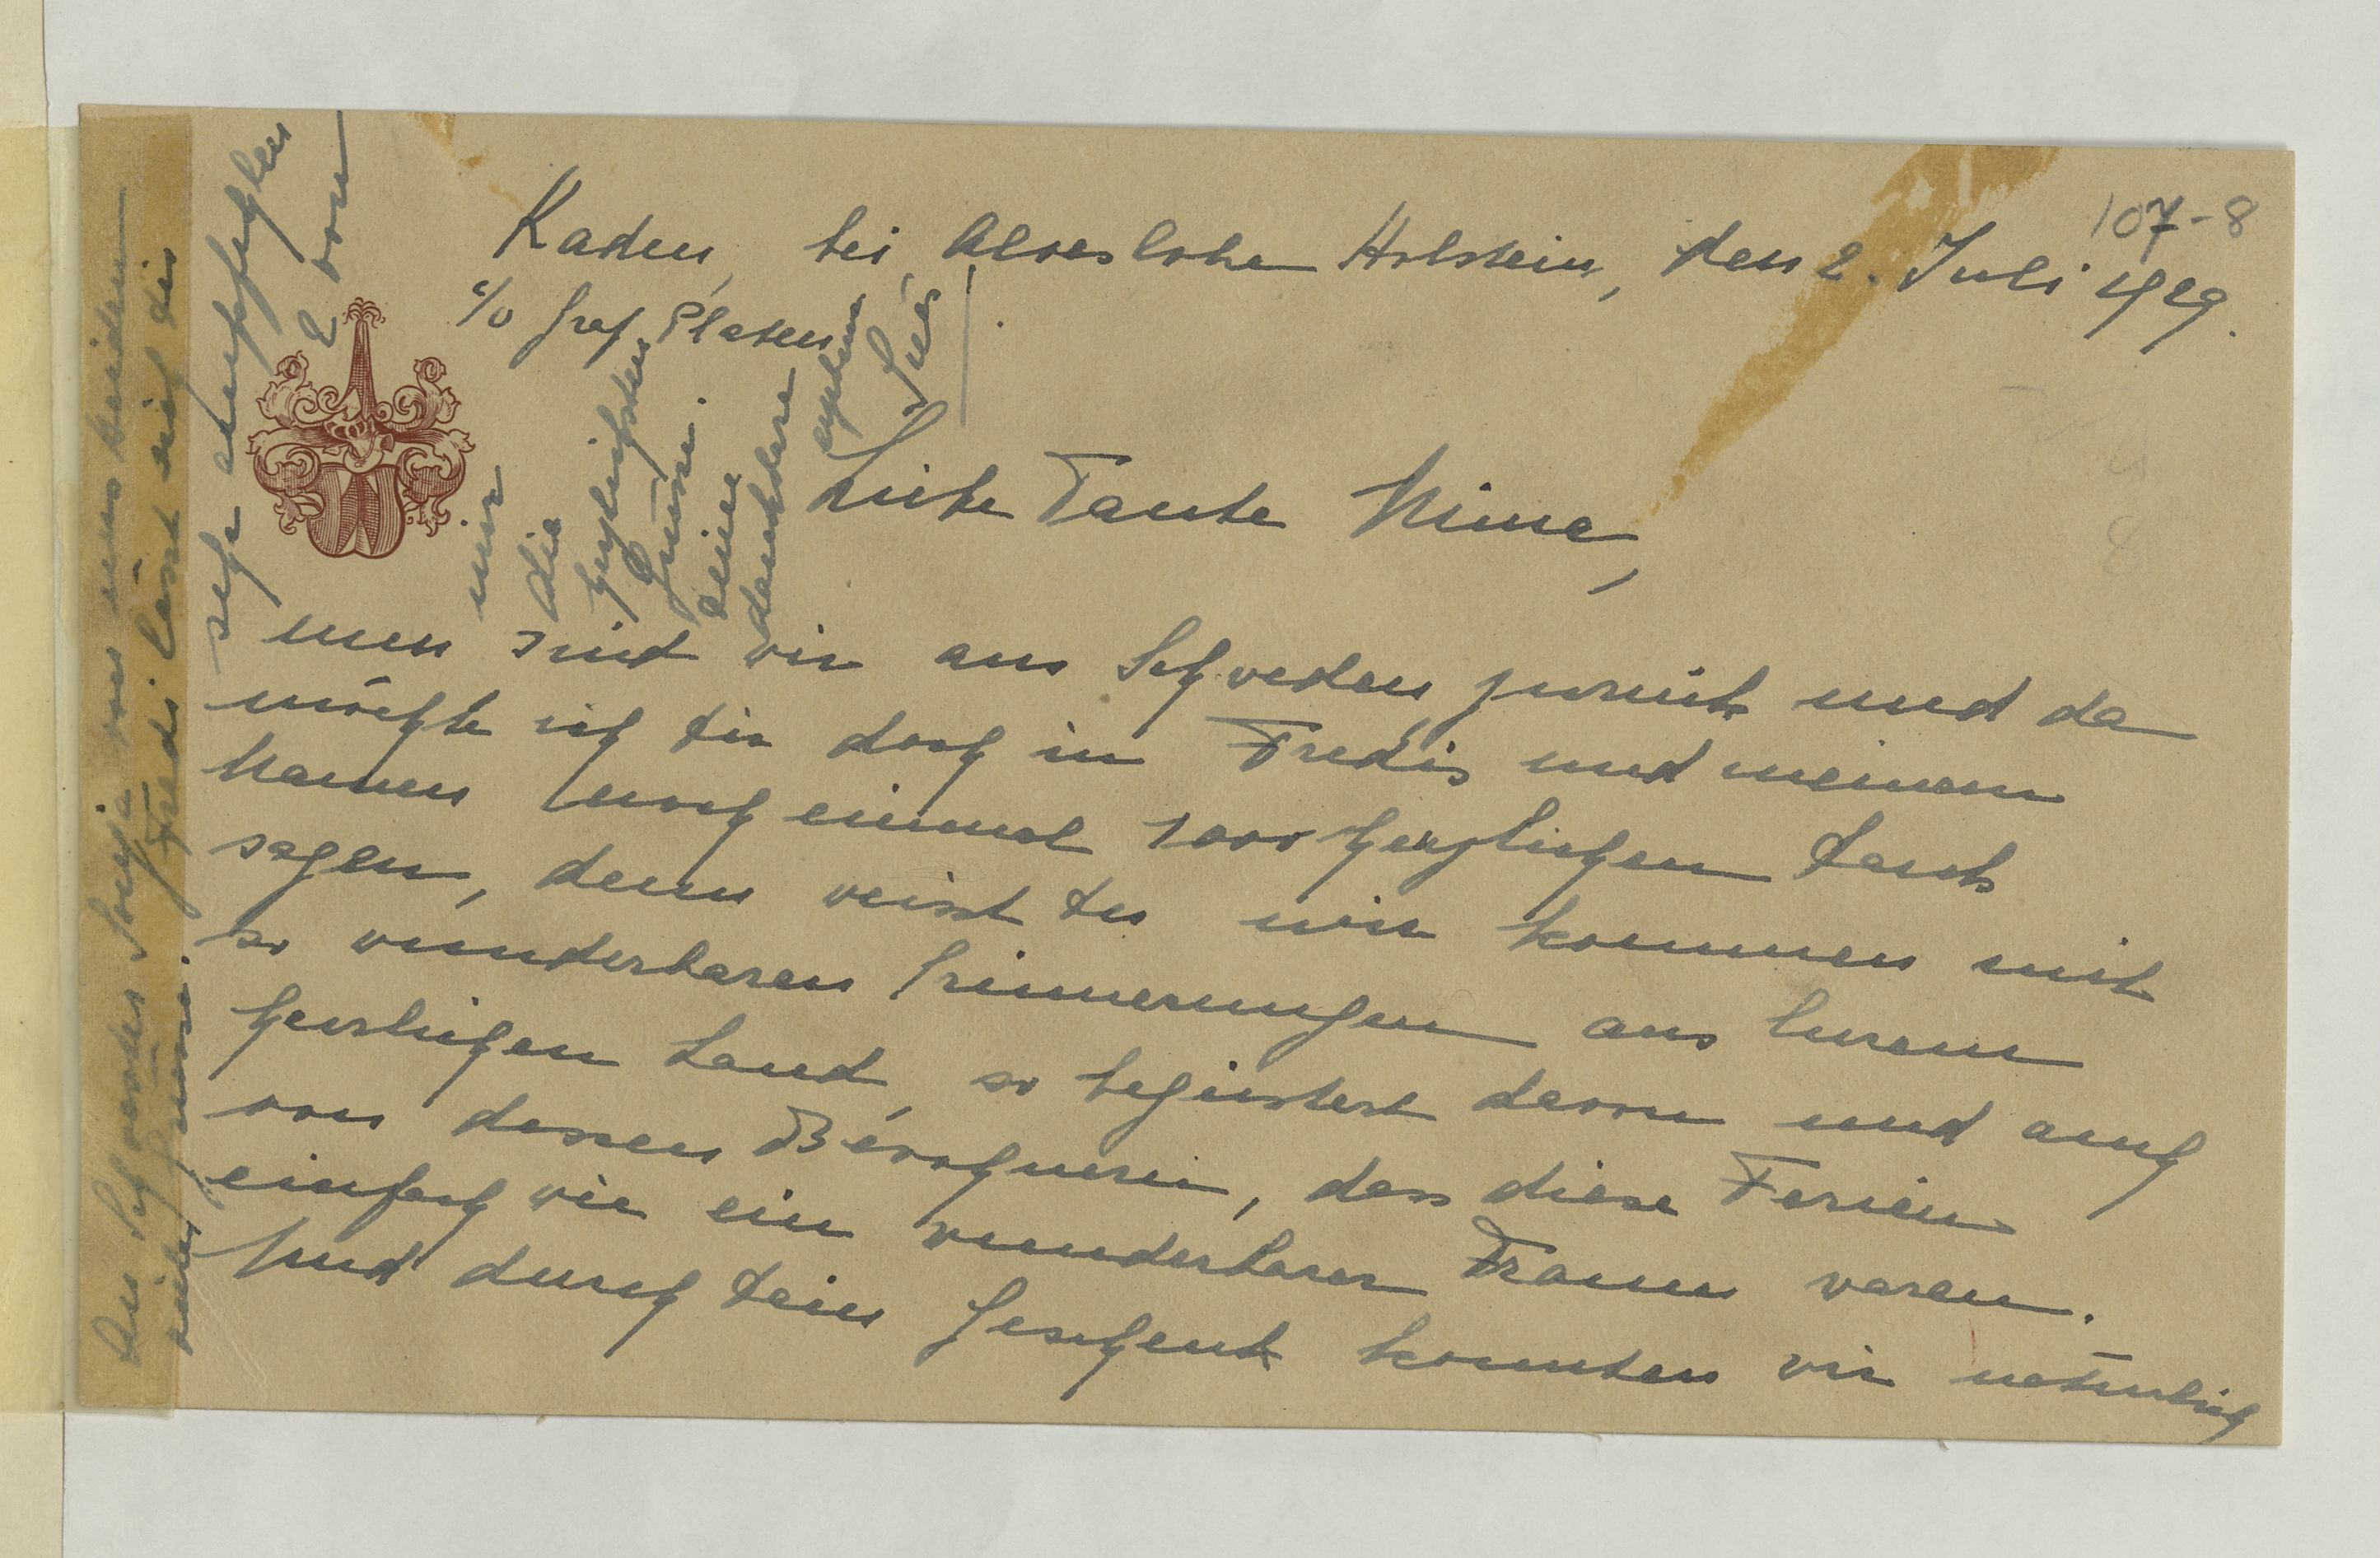 107-8
Kaden, bei Alveslohe Holstein, den 2. Juli 1929.
c/o Graf Platen
Liebe Tante Mime,
nun sind wir aus Schweden zurück und da
möchte ich Dir doch in Fredis und meinem
Namen noch einmal 1000 herzlichen Dank
sagen, denn weisst Du wir kommen mit
so wunderbaren Erinnerungen aus Eurem
herrlichen Land, so begeistert davon und auch
von dessen Bewohnern, dass diese Ferien
einfach wie ein wunderbarer Traum waren.
Und durch Dein Geschenk konnten wir natürlich
von uns beiden
Fredi lässt sich Dir
sehr empfehlen
2 von
mir
die
herzlichsten
Grüsse.
Deine
dankbare